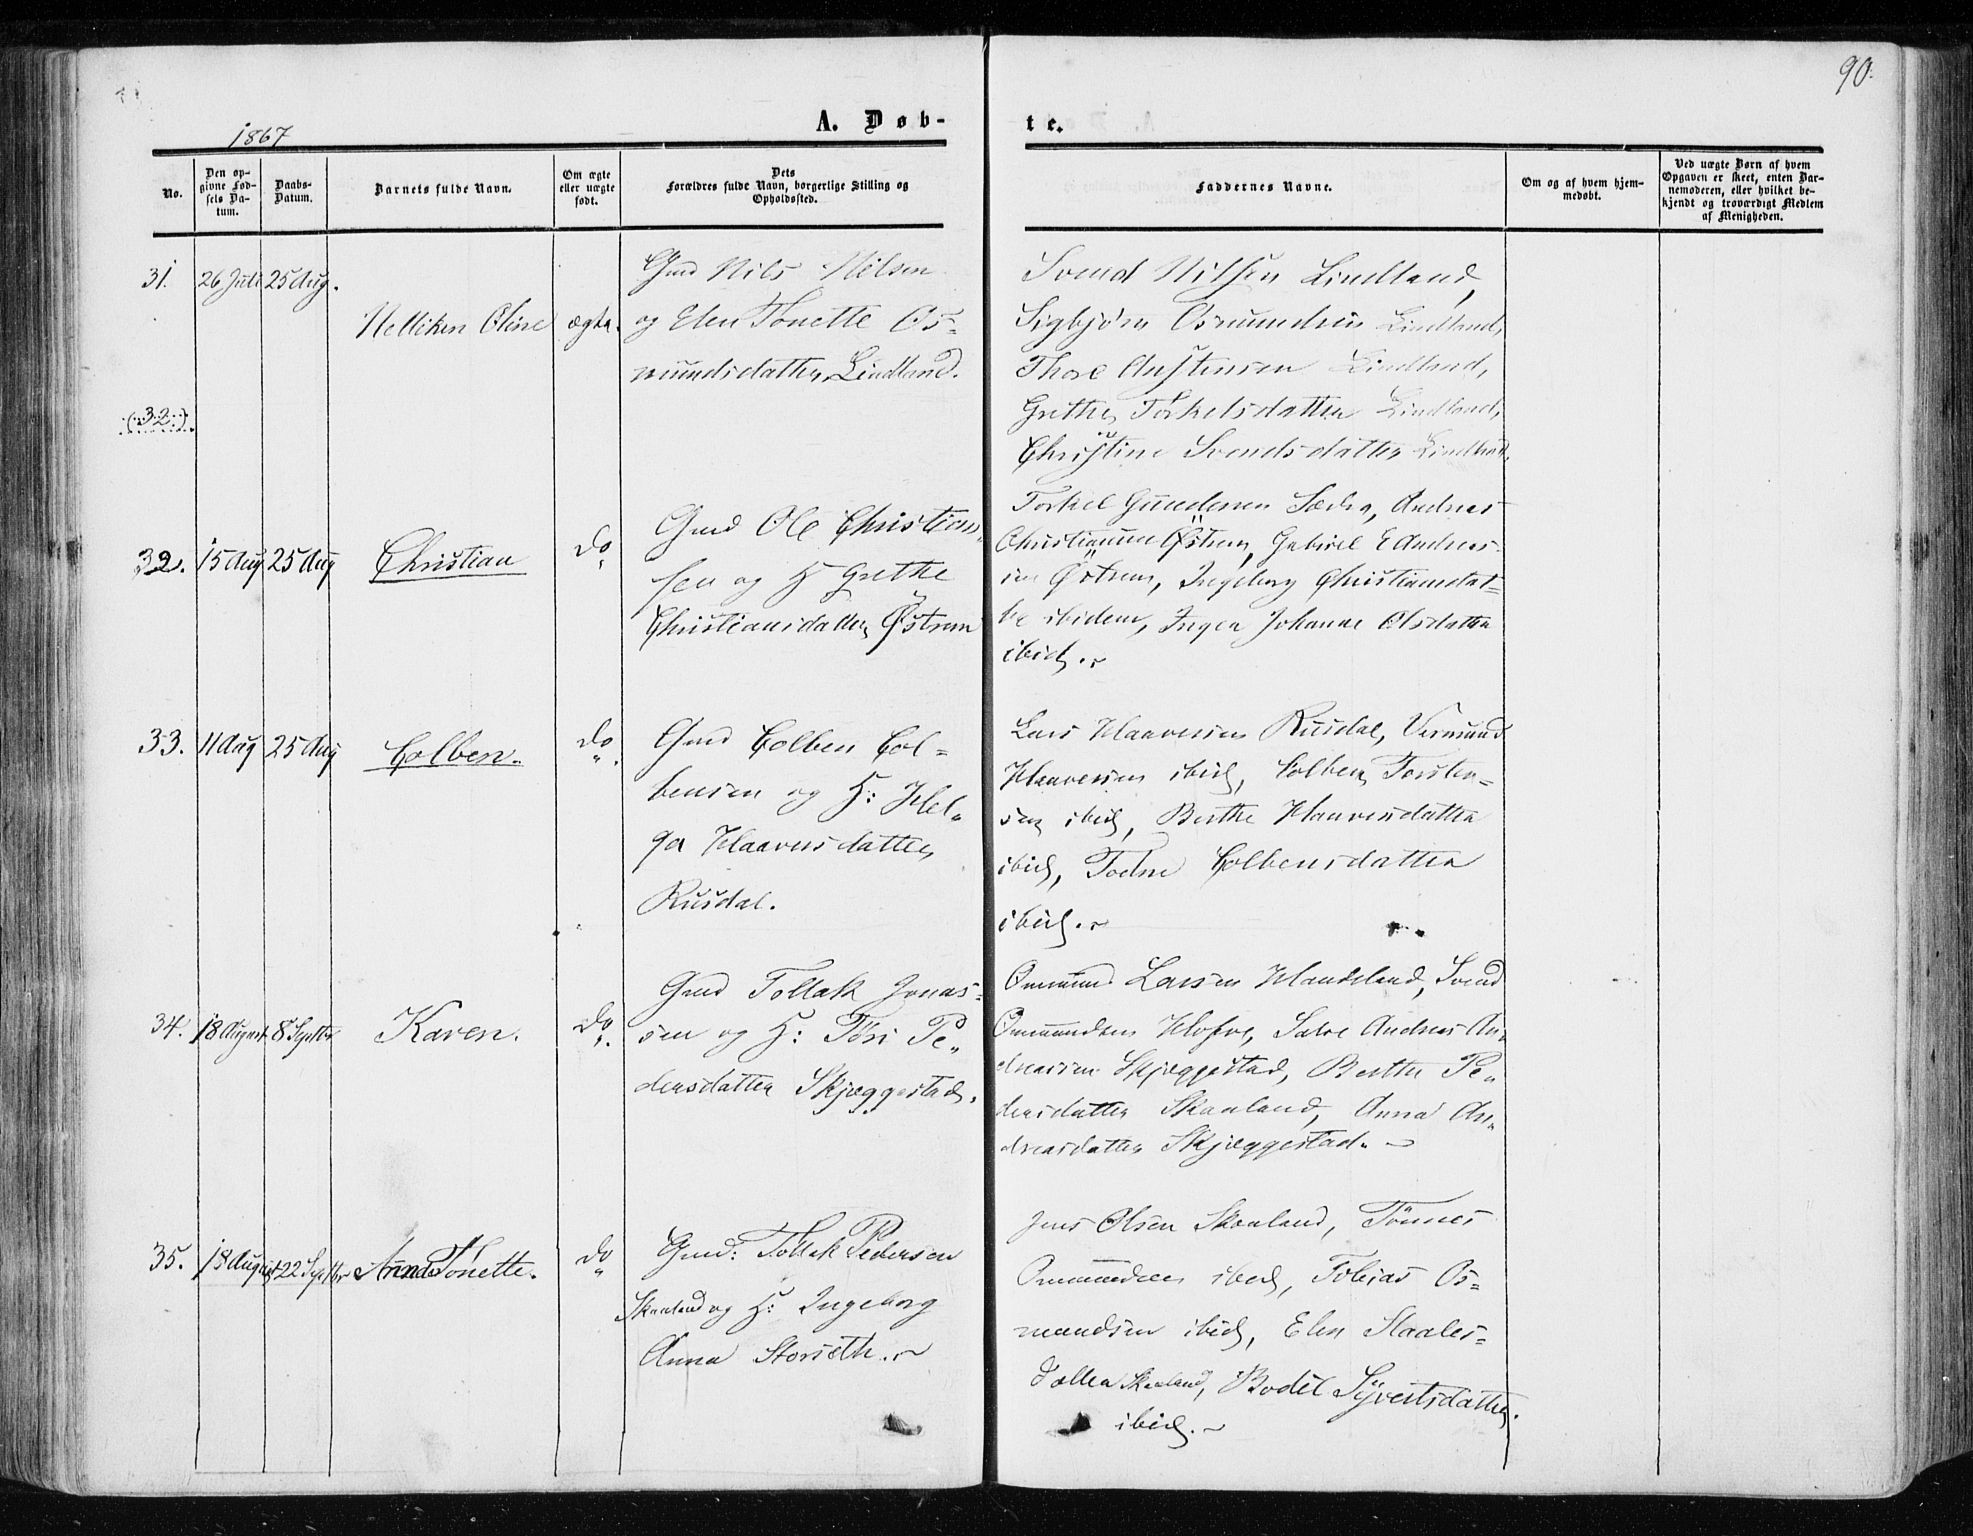 90.
1867
A. Døb-
te.
No.
Den op-
givne Fød-
sels Da-
tum.
Daabs-
Datum.
Barnets fulde Navn.
Om ægte
eller uægte
født.
Dets
Forældres fulde Navn, borgerlige Stilling og
Opholdssted.
Faddernes Navne.
Om og af hvem hjem-
medøbt.
Ved uægte Børn af hvem
Opgaven er skeet, enten Bar-
nemoderen, eller hvilket be-
kjendt og troværdigt Medlem
af Menigheden.
31. 26 Juli 25 Aug.
Nelliken Oline ægte.
Gmd Nils Nilsen
og Elen Tonette Os-
mundsdatter Lindland.
Svend Nilsen Lindland,
Sigbjørn Osmundsen Lindland,
Thore Austensen Lindland,
Grethe Torkelsdatter Lindland,
Christine Svendsdatter Lindland,
(32.)
32. 15 Aug 25 Aug Christian do
Gmd Ole Christian-
sen og H Grethe
Christiansdatter Østrem
Torkel Gundersen Andreas
Christiansen Østrem, Gabriel E Andreas-
sen Østrem, Ingeborg Christiansdat-
te ibidem, Inger Johanne Olsdatter
ibid.
33. 11 Aug 25 Aug Colben. do.
Gmd Colben Col-
bensen og H: Hel-
ga Haaversdatter
Rusdal.
Lars Haaversen Rusdal, Vermund
Haaversen ibid, Colben Torsten-
sen ibid, Berthe Haaversdatter
ibid, Todne Colbensdatter
ibid.
34. 18 August 8 Septbr Karen. do.
Gmd Tollak Jonas-
sen og H: Töri Pe-
dersdatter Skjæggestad.
Ommund Larsen Haudeland, Svend
Ommundsen Salve Andreas An-
dreassen Skjæggestad, Berthe Pe-
dersdatter Skaaland, Anna An-
dreasdatter Skjæggestad.
35. 18 August 22 Septbr Anna Tonette. do
Gmd: Tollak Pedersen
Skaaland og H: Ingeborg
Anna Storseth.
Jens Olsen Skaaland, Tönnes
Ommundsen ibid, Tobias Os-
mundsen ibid, Elen Staales-
datter Skaaland, Bodil Syvertsdatter
ibid.